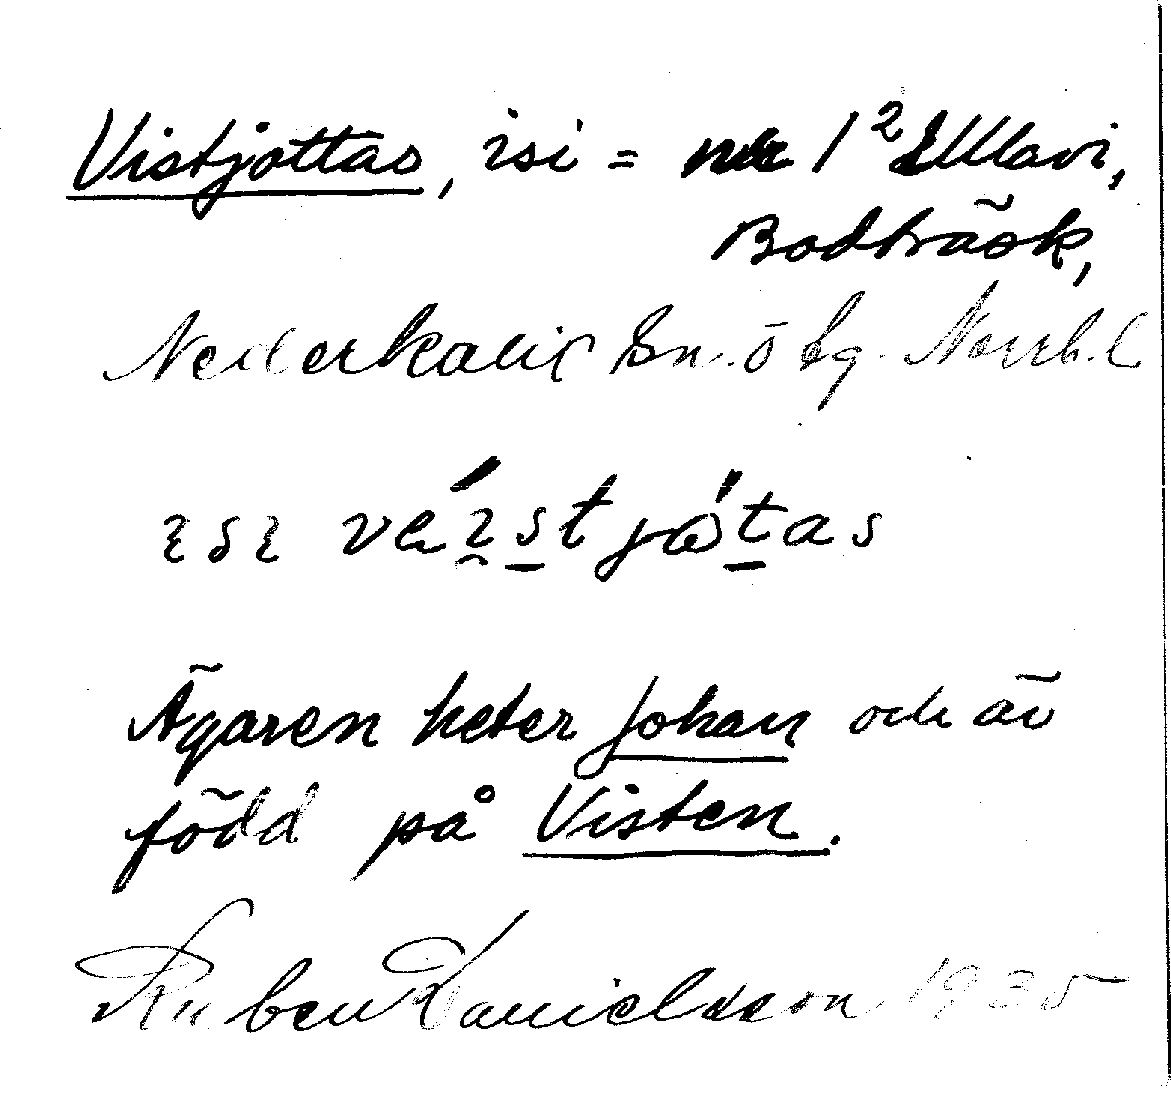 Vistjottas, isi = nr 1² Ullavi,
Bodträsk,
Nederkalix sn. ö bg. Norrb. l.
ɿsɿ véɿst jótas
Ägaren heter Johan och är
född på Visten.
Ruben Danielsson 1935